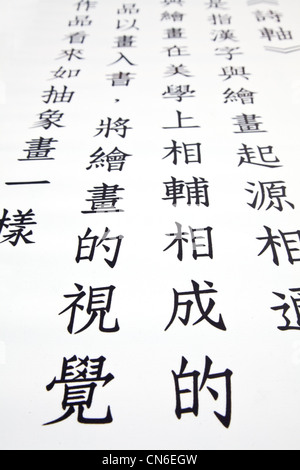 《詩軸》
是指漢字與繪畫起源相通
與繪畫在美學上相輔相成的
品以畫入書，將繪畫的視覺
作品看來如抽象畫一樣
alamy
Image ID: CN6EGW
www.alamy.com